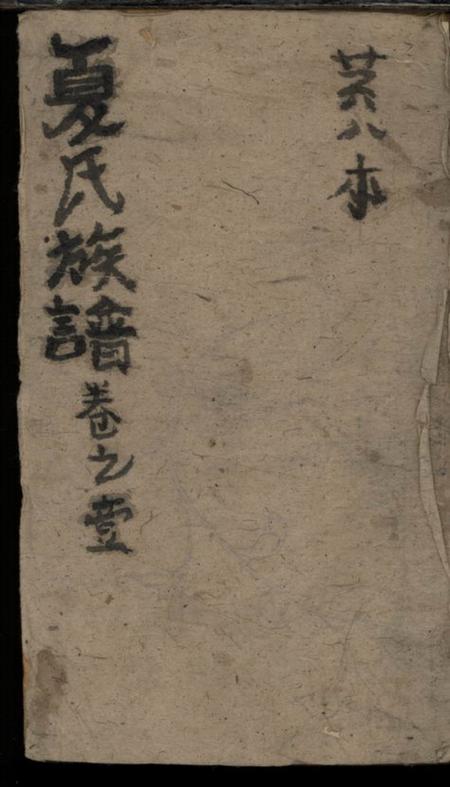 共八本
夏氏族譜卷之壹